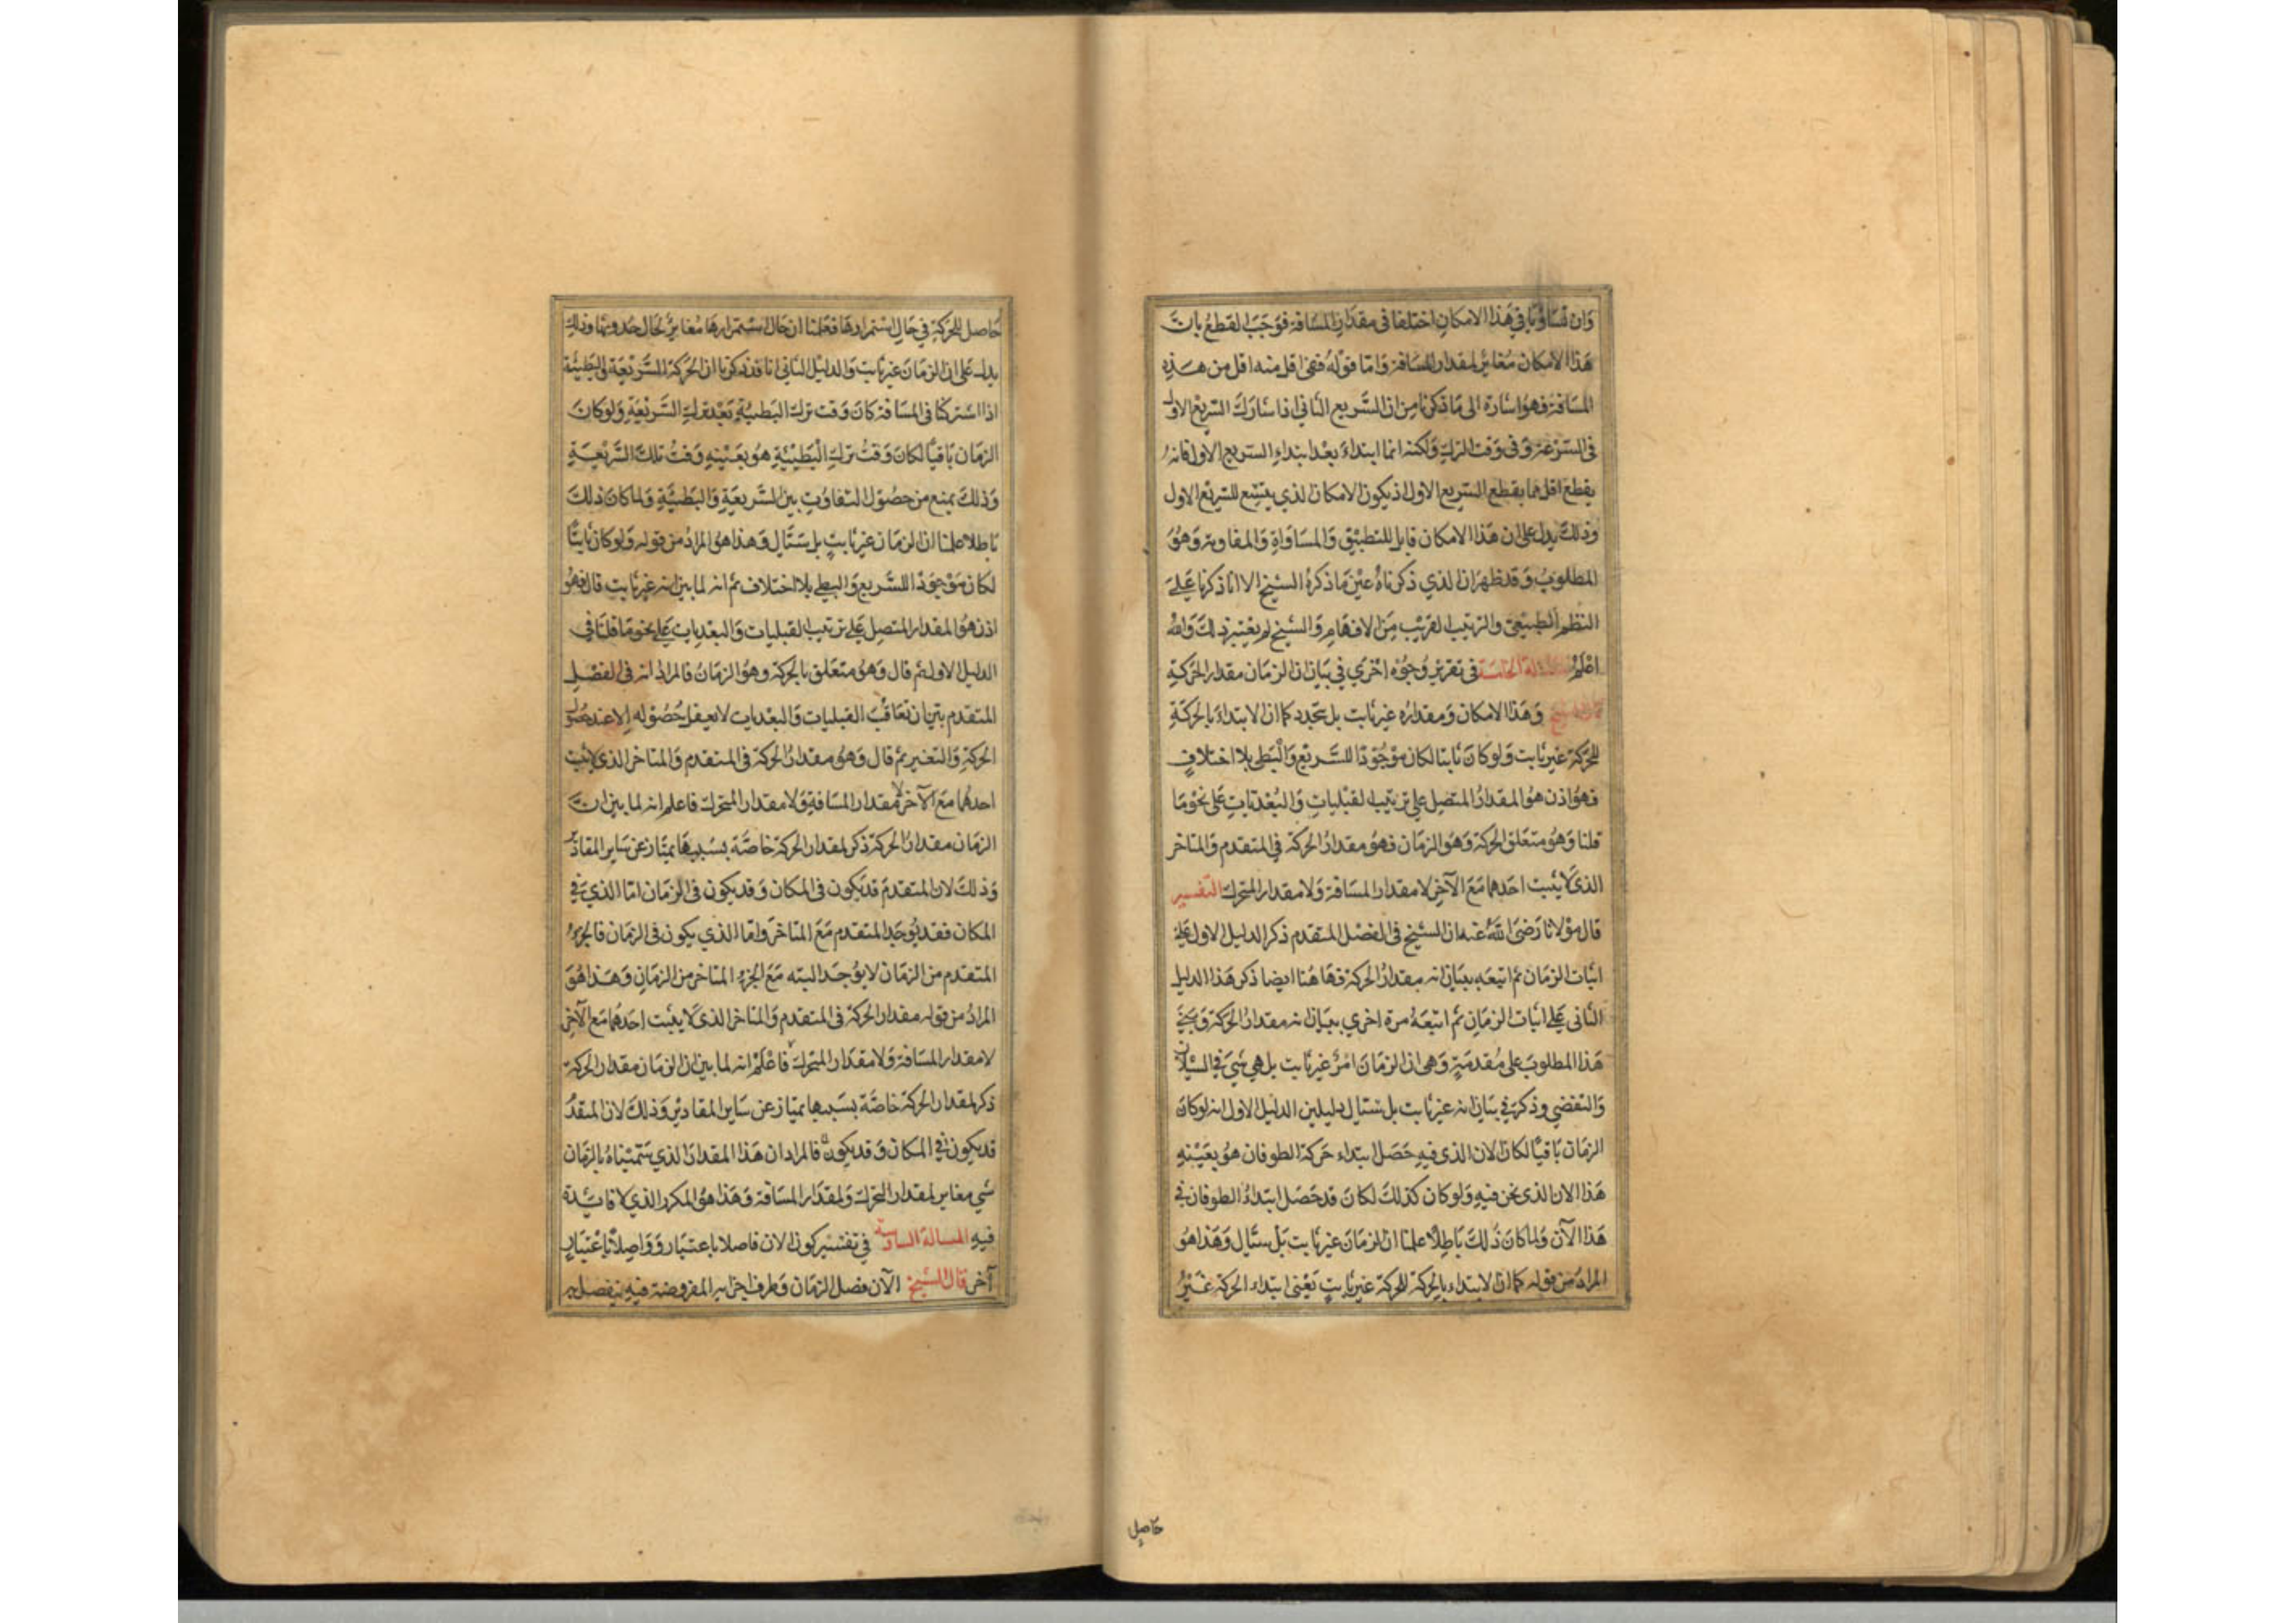 وان تساويا في هذا الامكان اختلفا في مقدار المسافة فوجب القطع بان
هذا الامكان مغاير لمقدار المسافة واما قوله ففي اقل منه اقل من هذه
المسافة فهو اشارة الى ما ذكرنا من ان السريع الثاني اذا شارك السريع الاول
في السرعة وفي وقت الترك ولكنه انما ابتداء بعد ابتداء السريع الاول فانه
يقطع اقل مما يقطع السريع الاول اذ يكون الامكان الذي يتسع للسريع الاول
وذلك يدل على ان هذا الامكان قابل للتطبيق والمساواة والمفاوتة وهو
المطلوب وقد ظهر ان الذي ذكرناه عين ما ذكره الشيخ الا انا ذكرنا على
النظم الطبيعي والترتيب القريب من الافهام والشيخ لم يعتبر ذلك والله
اعلم المسالة الخامسة في تقرير وجوه اخري في بيان ان الزمان مقدار الحركة
قال الشيخ وهذا الامكان ومقداره غير ثابت بل يتجدد كما ان الابتداء بالحركة
للحركة غير ثابت ولو كان ثابتا لكان موجودا للسريع والبطي بلا اختلاف
فهو اذن هو المقدار المتصل علي ترتيب القبليات والبعديات على نحو ما
قلنا وهو متعلق الحركة وهو الزمان فهو مقدار الحركة في المتقدم والمتاخر
الذي لا يثبت احدهما مع الآخر لا مقدار المسافة ولا مقدار المتحرك التفسير
قال مولانا رضي الله عنه ان الشيخ في الفصل المتقدم ذكر الدليل الاول على
اثبات الزمان ثم اتبعه ببيان انه مقدار الحركة فهاهنا ايضا ذكر هذا الدليل
الثاني على اثبات الزمان ثم اتبعه مرة اخري ببيان انه مقدار الحركة وبني
هذا المطلوب على مقدمة وهي ان الزمان امر غير ثابت بل هي شي في السيلان
والتقضي وذكر في بيان انه غير ثابت بل سيال دليلين الدليل الاول انه لو كان
الزمان باقيا لكان الان الذي فيه حصل ابتداء حركة الطوفان هو بعينه
هذا الان الذي نحن فيه ولو كان كذلك لكان قد حصل ابتداء الطوفان في
هذا الآن ولما كان ذلك باطلا علمنا ان الزمان غير ثابت بل سيال وهذا هو
المراد من قوله كما ان الابتداء بالحركة للحركة غير ثابت يعني ابتداء الحركة غير
حاصل
حاصل للحركة في حال استمرارها فعلمنا ان حال استمرارها مغاير لحال حدوثها وذلك
يدل على ان الزمان غير ثابت والدليل الثاني انا قد ذكرنا ان الحركة السريعة والبطيئة
اذا اشتركا في المسافة كان وقت ترك البطيئة بعد ترك السريعة ولو كان
الزمان باقيا لكان وقت ترك البطيئة هو بعينه وقت تلك السريعة
وذلك يمنع من حصول التفاوت بين السريعة والبطيئة ولما كان ذلك
باطلا علمنا ان الزمان غير ثابت بل سيال وهذا هو المراد من قوله ولو كان ثابتا
لكان موجودا للسريع والبطي بلا اختلاف ثم انه لما بين انه غير ثابت قال فهو
اذن هو المقدار المتصل على ترتيب القبليات والبعديات على نحو ما قلنا في
الدليل الاول ثم قال وهو متعلق بالحركة وهو الزمان فالمراد انه في الفصل
المتقدم بين ان تعاقب القبليات والبعديات لا يعقل حصوله الا عند حصول
الحركة والتغير ثم قال وهو مقدار الحركة في المتقدم والمتاخر الذي لا يثبت
احدهما مع الآخر لا مقدار المسافة ولا مقدار المتحرك فاعلم انه لما بين ان
الزمان مقدار الحركة ذكر لمقدار الحركة خاصة بسببها يمتاز عن ساير المقادير
وذلك لان المتقدم قد يكون في المكان وقد يكون في الزمان اما الذي في
المكان فقد يوجد المتقدم مع المتاخر واما الذي يكون في الزمان فالجزء
المتقدم من الزمان لا يوجد البته مع الجزء المتاخر من الزمان وهذا هو
المراد من قوله مقدار الحركة في المتقدم والمتاخر الذي لا يثبت احدهما مع الآخر
لا مقدار المسافة ولا مقدار المتحرك فاعلم انه لما بين ان الزمان مقدار الحركة
ذكر لمقدار الحركة خاصة بسببها يمتاز عن ساير المقادير وذلك لان المتقدم
قد يكون في المكان وقد يكون فالمراد ان هذا المقدار الذي سميناه بالزمان
شي مغاير لمقدار المتحرك ولمقدار المسافة وهذا هو المكرر الذي لا فايدة
فيه المسالة السادسة في تفسير كون الان فاصلا باعتبار وواصلا باعتبار
آخر قال الشيخ الآن فصل الزمان وطرف اجزائه المفروضة فيه ينفصل به